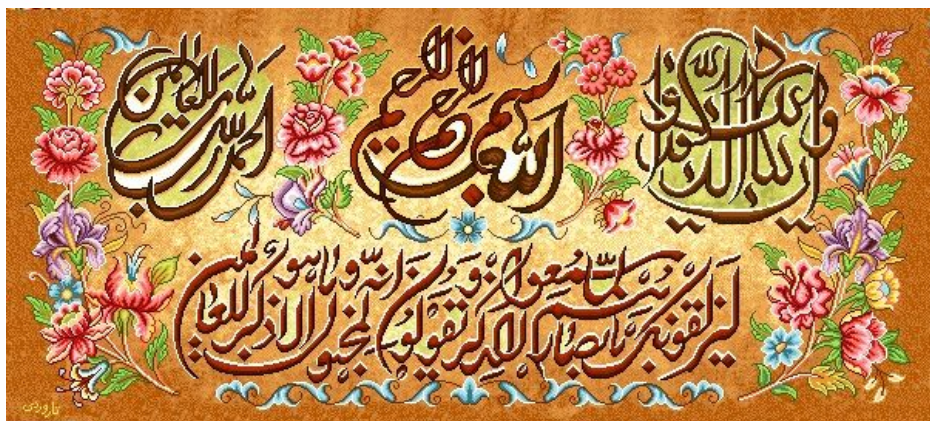 وإن يكاد الذين كفروا
بسم الله الرحمن الرحيم
الحمد لله رب العالمين
ليزلقونك بأبصارهم لما سمعوا الذكر ويقولون إنه لمجنون وما هو إلا ذكر للعالمين